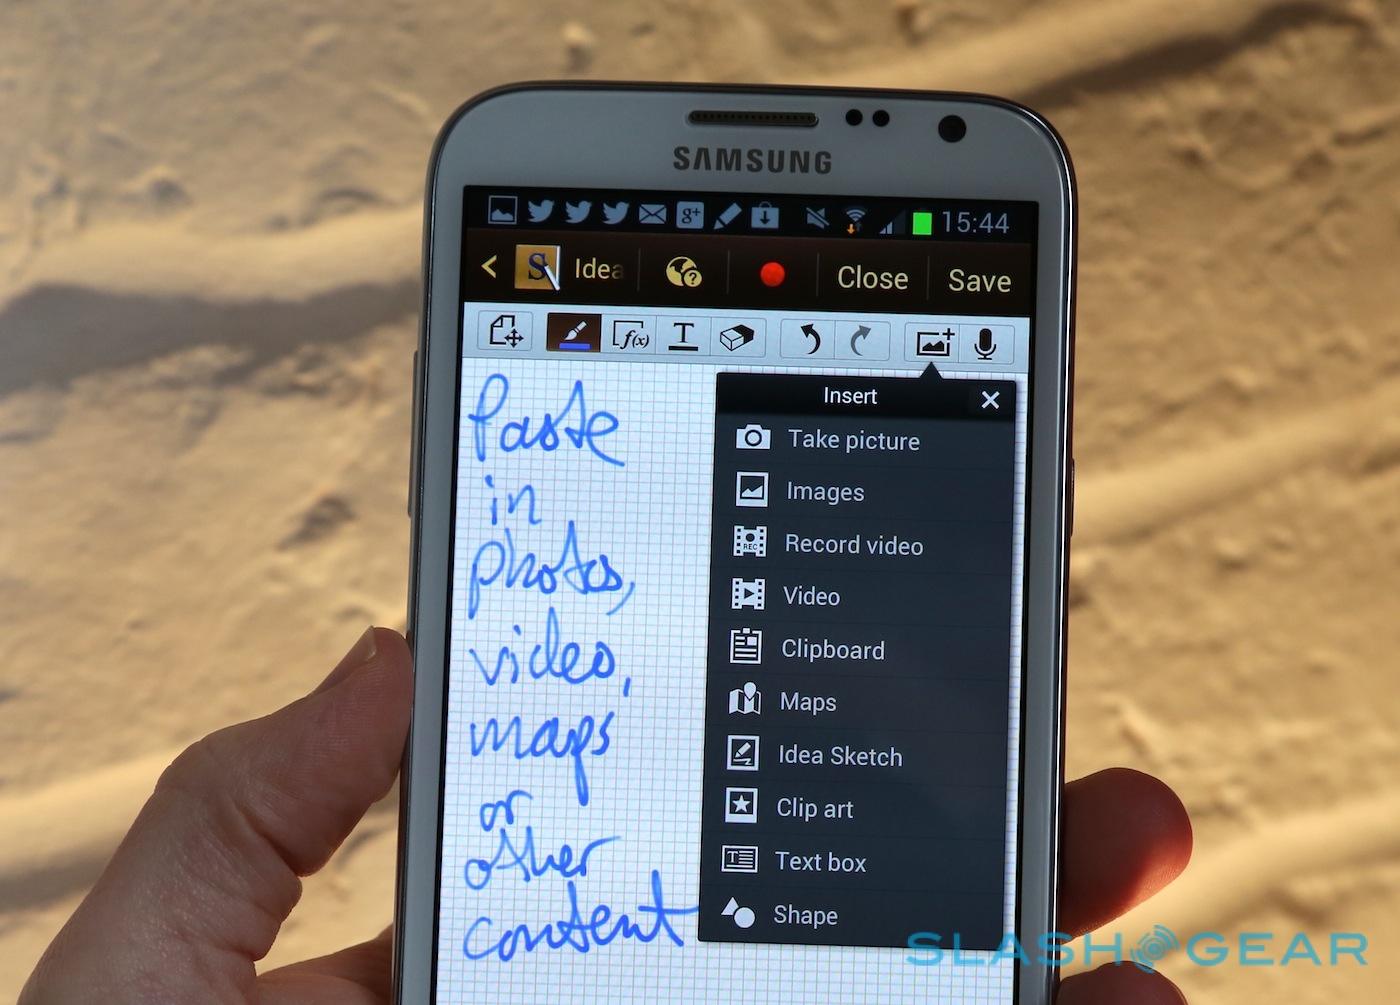 SAMSUNG
g+ 15:44
S Idea ? Close Save
f(x) T
Paste
in
photos,
video,
maps
or
other
content
Insert
Take picture
Images
REC Record video
Video
Clipboard
Maps
Idea Sketch
Clip art
T Text box
Shape
SLASHGEAR